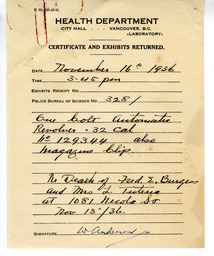 HEALTH DEPARTMENT
CITY HALL VANCOUVER, B.C.
(LABORATORY)
CERTIFICATE AND EXHIBITS RETURNED.
DATE November 16th 1936
TIME 3-45 pm
EXHIBITS RECEIPT NO.
POLICE BUREAU OF SCIENCE NO. 3281
One Colts Automatic
Revolver .32 Cal
No 129344 also
Magazine Clip.
Re Death of Fred E. Burgess
and Mrs L.
at 1081 Nicola St
Nov 13/36.
SIGNATURE